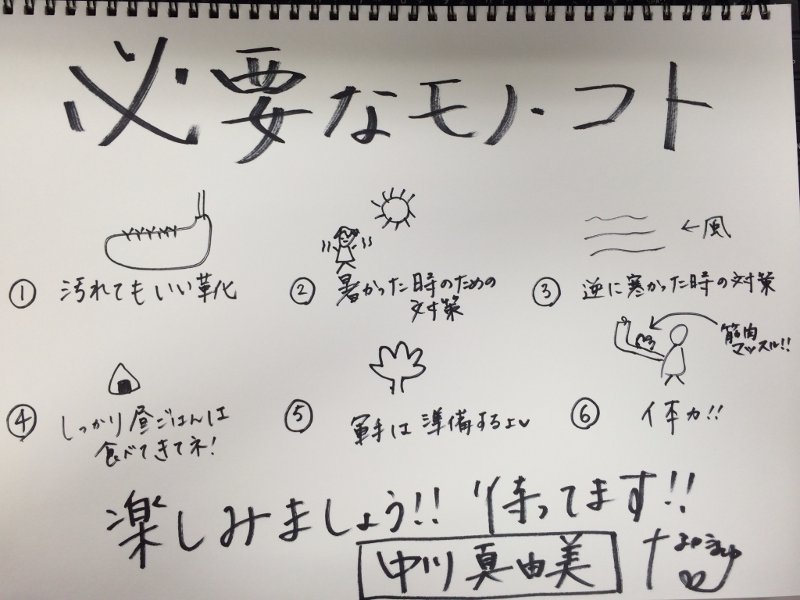 必要なモノ・コト
① 汚れてもいい靴
② 暑かった時のための
対策
←風
③ 逆に寒かった時の対策
④ しっかり昼ごはんは
食べてきてネ!
⑤ 軍手は準備するよ
筋肉
マッスル!!
⑥ 体力!!
楽しみましょう!! 待ってます!!
中川 真由美